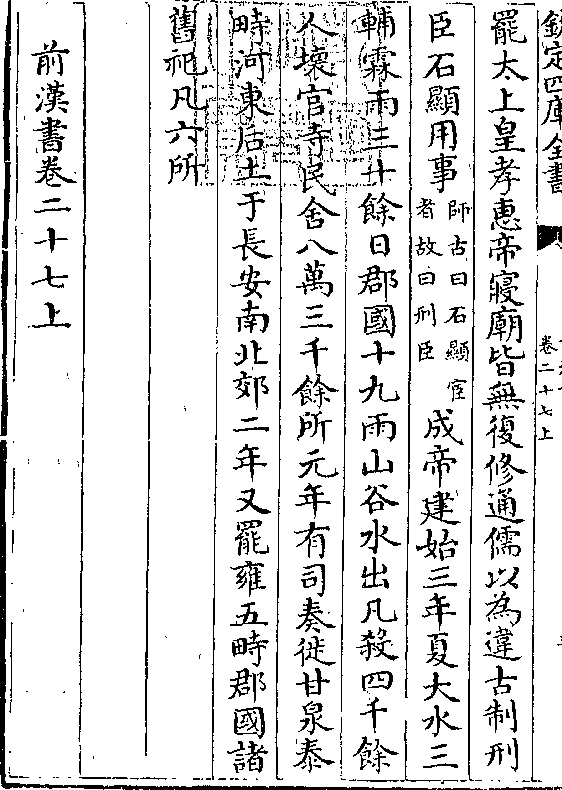 欽定四庫全書
卷二十七上
罷太上皇孝惠帝寢廟皆無復修通儒以為違古制刑
臣石顯用事
師古曰石顯宦
者故曰刑臣
成帝建始三年夏大水三
輔霖雨三十餘日郡國十九雨山谷水出凡殺四千餘
人壞官寺民舍八萬三千餘所元年有司奏徙甘泉泰
畤河東后土于長安南北郊二年又罷雍五畤郡國諸
舊祀凡六所
前漢書卷二十七上